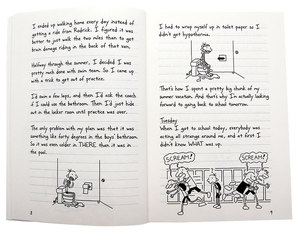 I ended up walking home every day instead of
getting a ride from Rodrick. I figured it was
better to just walk the two miles than to get
brain damage riding in the back of that van.
Halfway through the summer, I decided I was
pretty much done with swim team. So I came up
with a trick to get out of practice.
I'd swim a few laps, and then I'd ask the coach
if I could use the bathroom. Then I'd just hide
out in the locker room until practice was over.
The only problem with my plan was that it was
something like forty degrees in the boys' bathroom.
So it was even colder in THERE than it was in
the pool.
I had to wrap myself up in toilet paper so I
didn't get hypothermia.
That's how I spent a pretty big chunk of my
summer vacation. And that's why I'm actually
looking forward to going back to school tomorrow.
Tuesday
When I got to school today, everybody was
acting all strange around me, and at first I
didn't know WHAT was up.
SCREAM!
SCREAM!